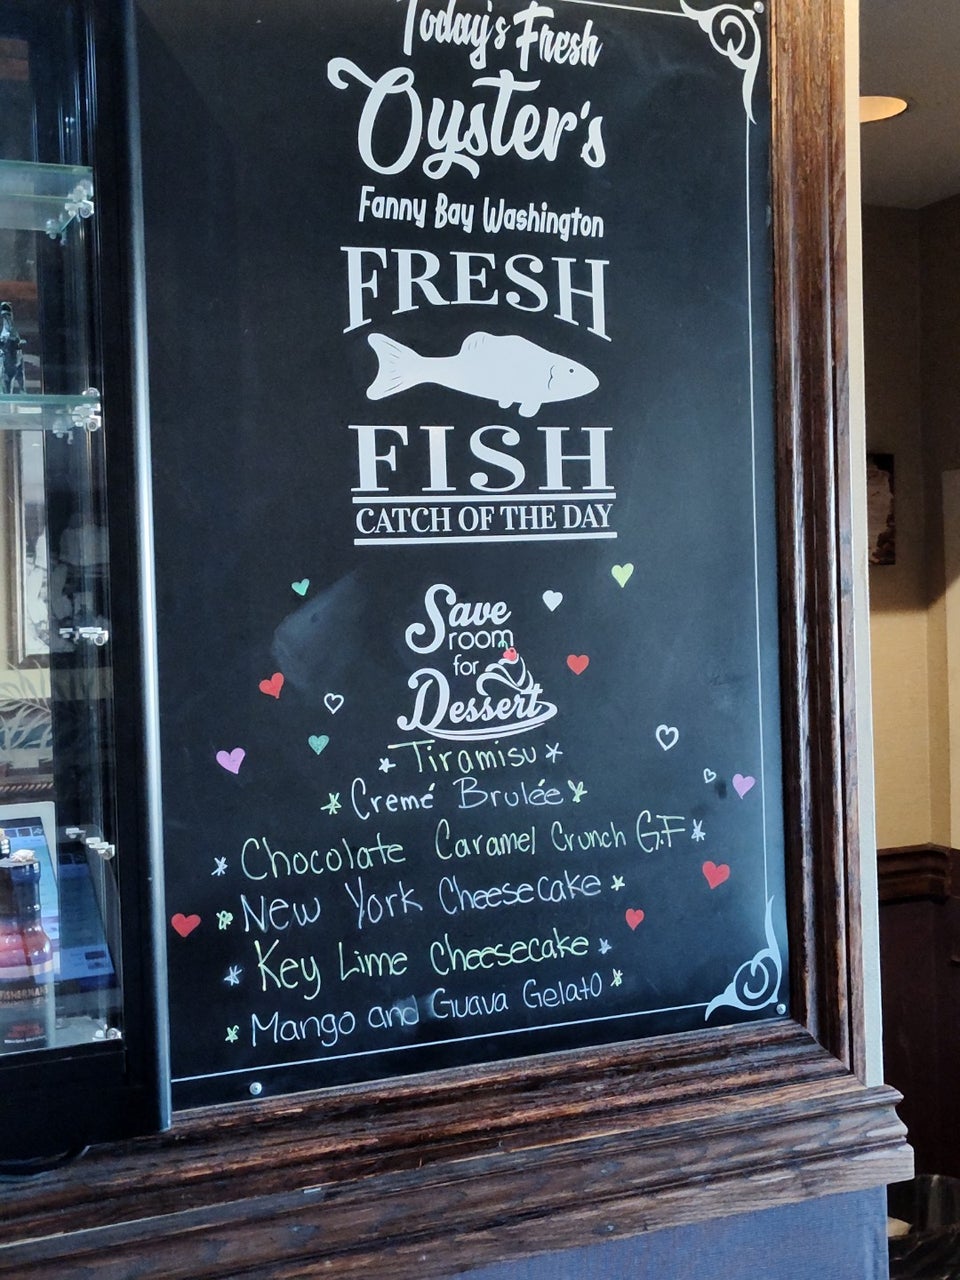 Today's Fresh
Oyster's
Fanny Bay Washington
FRESH
FISH
CATCH OF THE DAY
Save
room
for
Dessert
Tiramisu
Cremé Brulée
Chocolate Caramel Crunch G.F
New York Cheesecake
Key Lime Cheesecake
Mango and Guava Gelato